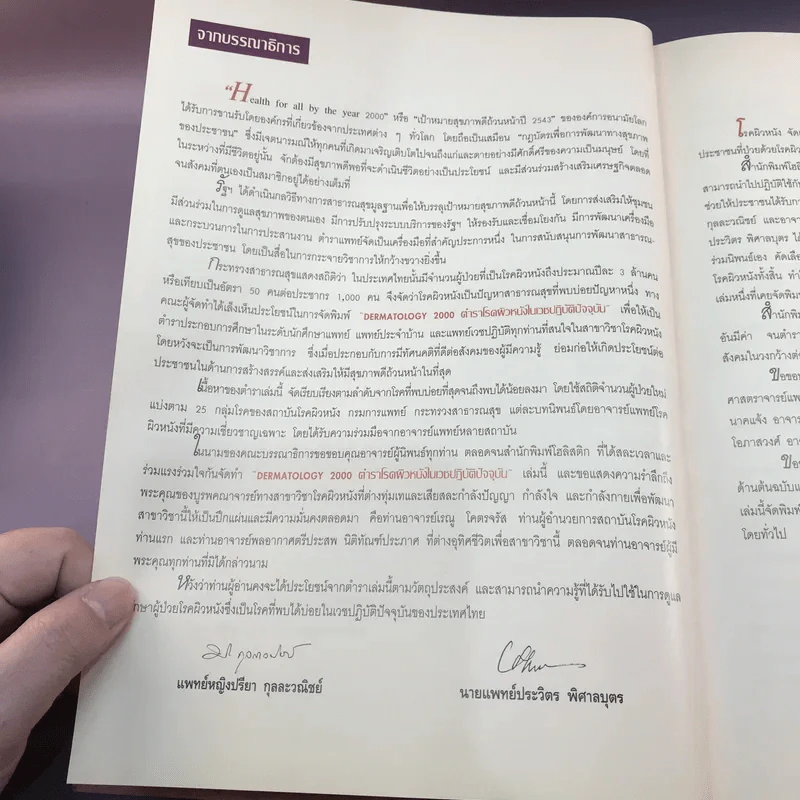 จากบรรณาธิการ
"Health for all by the year 2000" หรือ "เป้าหมายสุขภาพดีถ้วนหน้าปี 2543" ขององค์การอนามัยโลก
ได้รับการขานรับโดยองค์กรที่เกี่ยวข้องจากประเทศต่าง ๆ ทั่วโลก โดยถือเป็นเสมือน "กฎบัตรเพื่อการพัฒนาทางสุขภาพ
ของประชาชน" ซึ่งมีเจตนารมณ์ให้ทุกคนที่เกิดมาเจริญเติบโตไปจนถึงแก่และตายอย่างมีศักดิ์ศรีของความเป็นมนุษย์ โดยที่
ในระหว่างที่มีชีวิตอยู่นั้น จักต้องมีสุขภาพดีพอที่จะดำเนินชีวิตอย่างเป็นประโยชน์ และมีส่วนร่วมสร้างเสริมเศรษฐกิจตลอด
จนสังคมที่ตนเองเป็นสมาชิกอยู่ได้อย่างเต็มที่
รัฐฯ ได้ดำเนินกลวิธีทางการสาธารณสุขมูลฐานเพื่อให้บรรลุเป้าหมายสุขภาพดีถ้วนหน้านี้ โดยการส่งเสริมให้ชุมชน
มีส่วนร่วมในการดูแลสุขภาพของตนเอง มีการปรับปรุงระบบบริการของรัฐฯ ให้รองรับและเชื่อมโยงกัน มีการพัฒนาเครื่องมือ
และกระบวนการในการประสานงาน ตำราแพทย์จัดเป็นเครื่องมือที่สำคัญประการหนึ่ง ในการสนับสนุนการพัฒนาสาธารณ-
สุขของประชาชน โดยเป็นสื่อในการกระจายวิชาการให้กว้างขวางยิ่งขึ้น
กระทรวงสาธารณสุขแสดงสถิติว่า ในประเทศไทยนั้นมีจำนวนผู้ป่วยที่เป็นโรคผิวหนังถึงประมาณปีละ 3 ล้านคน
หรือเทียบเป็นอัตรา 50 คนต่อประชากร 1,000 คน จึงจัดว่าโรคผิวหนังเป็นปัญหาสาธารณสุขที่พบบ่อยปัญหาหนึ่ง ทาง
คณะผู้จัดทำได้เล็งเห็นประโยชน์ในการจัดพิมพ์ "DERMATOLOGY 2000 ตำราโรคผิวหนังในเวชปฏิบัติปัจจุบัน" เพื่อให้เป็น
ตำราประกอบการศึกษาในระดับนักศึกษาแพทย์ แพทย์ประจำบ้าน และแพทย์เวชปฏิบัติทุกท่านที่สนใจในสาขาวิชาโรคผิวหนัง
โดยหวังจะเป็นการพัฒนาวิชาการ ซึ่งเมื่อประกอบกับการมีทัศนคติที่ดีต่อสังคมของผู้มีความรู้ ย่อมก่อให้เกิดประโยชน์ต่อ
ประชาชนในด้านการสร้างสรรค์และส่งเสริมให้มีสุขภาพดีถ้วนหน้าในที่สุด
เนื้อหาของตำราเล่มนี้ จัดเรียบเรียงตามลำดับจากโรคที่พบบ่อยที่สุดจนถึงพบได้น้อยลงมา โดยใช้สถิติจำนวนผู้ป่วยใหม่
แบ่งตาม 25 กลุ่มโรคของสถาบันโรคผิวหนัง กรมการแพทย์ กระทรวงสาธารณสุข แต่ละบทนิพนธ์โดยอาจารย์แพทย์โรค
ผิวหนังที่มีความเชี่ยวชาญเฉพาะ โดยได้รับความร่วมมือจากอาจารย์แพทย์หลายสถาบัน
ในนามของคณะบรรณาธิการขอขอบคุณอาจารย์ผู้นิพนธ์ทุกท่าน ตลอดจนสำนักพิมพ์โฮลิสติก ที่ได้สละเวลาและ
ร่วมแรงร่วมใจกันจัดทำ "DERMATOLOGY 2000 ตำราโรคผิวหนังในเวชปฏิบัติปัจจุบัน" เล่มนี้ และขอแสดงความรำลึกถึง
พระคุณของบูรพคณาจารย์ทางสาขาวิชาโรคผิวหนังที่ต่างทุ่มเทและเสียสละกำลังปัญญา กำลังใจ และกำลังกายเพื่อพัฒนา
สาขาวิชานี้ให้เป็นปึกแผ่นและมีความมั่นคงตลอดมา คือท่านอาจารย์เรณู โคตรจรัส ท่านผู้อำนวยการสถาบันโรคผิวหนัง
ท่านแรก และท่านอาจารย์พลอากาศตรีประสพ นิติทัณฑ์ประภาศ ที่ต่างอุทิศชีวิตเพื่อสาขาวิชานี้ ตลอดจนท่านอาจารย์ผู้มี
พระคุณทุกท่านที่มิได้กล่าวนาม
หวังว่าท่านผู้อ่านคงจะได้ประโยชน์จากตำราเล่มนี้ตามวัตถุประสงค์ และสามารถนำความรู้ที่ได้รับไปใช้ในการดูแล
รักษาผู้ป่วยโรคผิวหนังซึ่งเป็นโรคที่พบได้บ่อยในเวชปฏิบัติปัจจุบันของประเทศไทย
แพทย์หญิงปรียา กุลละวณิชย์
นายแพทย์ประวิตร พิศาลบุตร
โรคผิวหนัง จัด
ประชาชนที่ป่วยด้วยโรคผิวหนัง
สำนักพิมพ์โฮลิ
สามารถนำไปปฏิบัติใช้กับ
ช่วยให้ประชาชนได้รับการ
กุลละวณิชย์ และอาจาร
ประวิตร พิศาลบุตร ได้
ร่วมนิพนธ์เอง คัดเลือ
โรคผิวหนังทั้งสิ้น ทำ
เล่มหนึ่งที่เคยจัดพิมพ์
สำนักพิม
อันมีค่า จนตำรา
สังคมในวงกว้างต่อ
ขอขอบ
ศาสตราจารย์แพ
นาคแจ้ง อาจาร
โอภาสวงศ์ อาจา
ขอขอ
ด้านต้นฉบับแล
เล่มนี้จัดพิมพ์
โดยทั่วไป